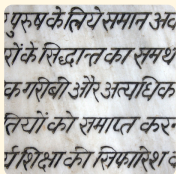 पुरुष के लिये समान अव
रों के सिद्धान्त का समथ
क गरीबी और अत्यधिक
तियों को समाप्त करन
शिक्षा की सिफारिश क